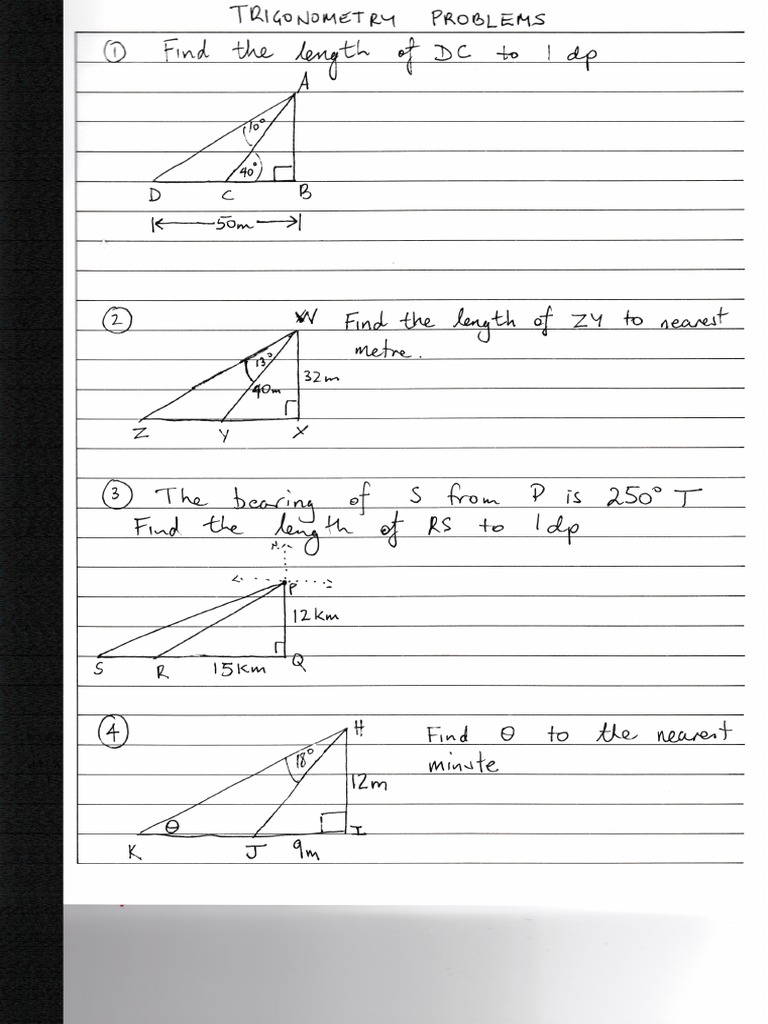 TRIGONOMETRY PROBLEMS
① Find the length of DC to 1 dp
A
10°
40°
D C B
50m
② W Find the length of ZY to nearest
metre.
13°
32m
40m
Z Y X
③ The bearing of S from P is 250° T
Find the length of RS to 1dp
N
P
12km
S R 15km Q
④ H Find θ to the nearest
minute
18°
12m
θ I
K J 9m